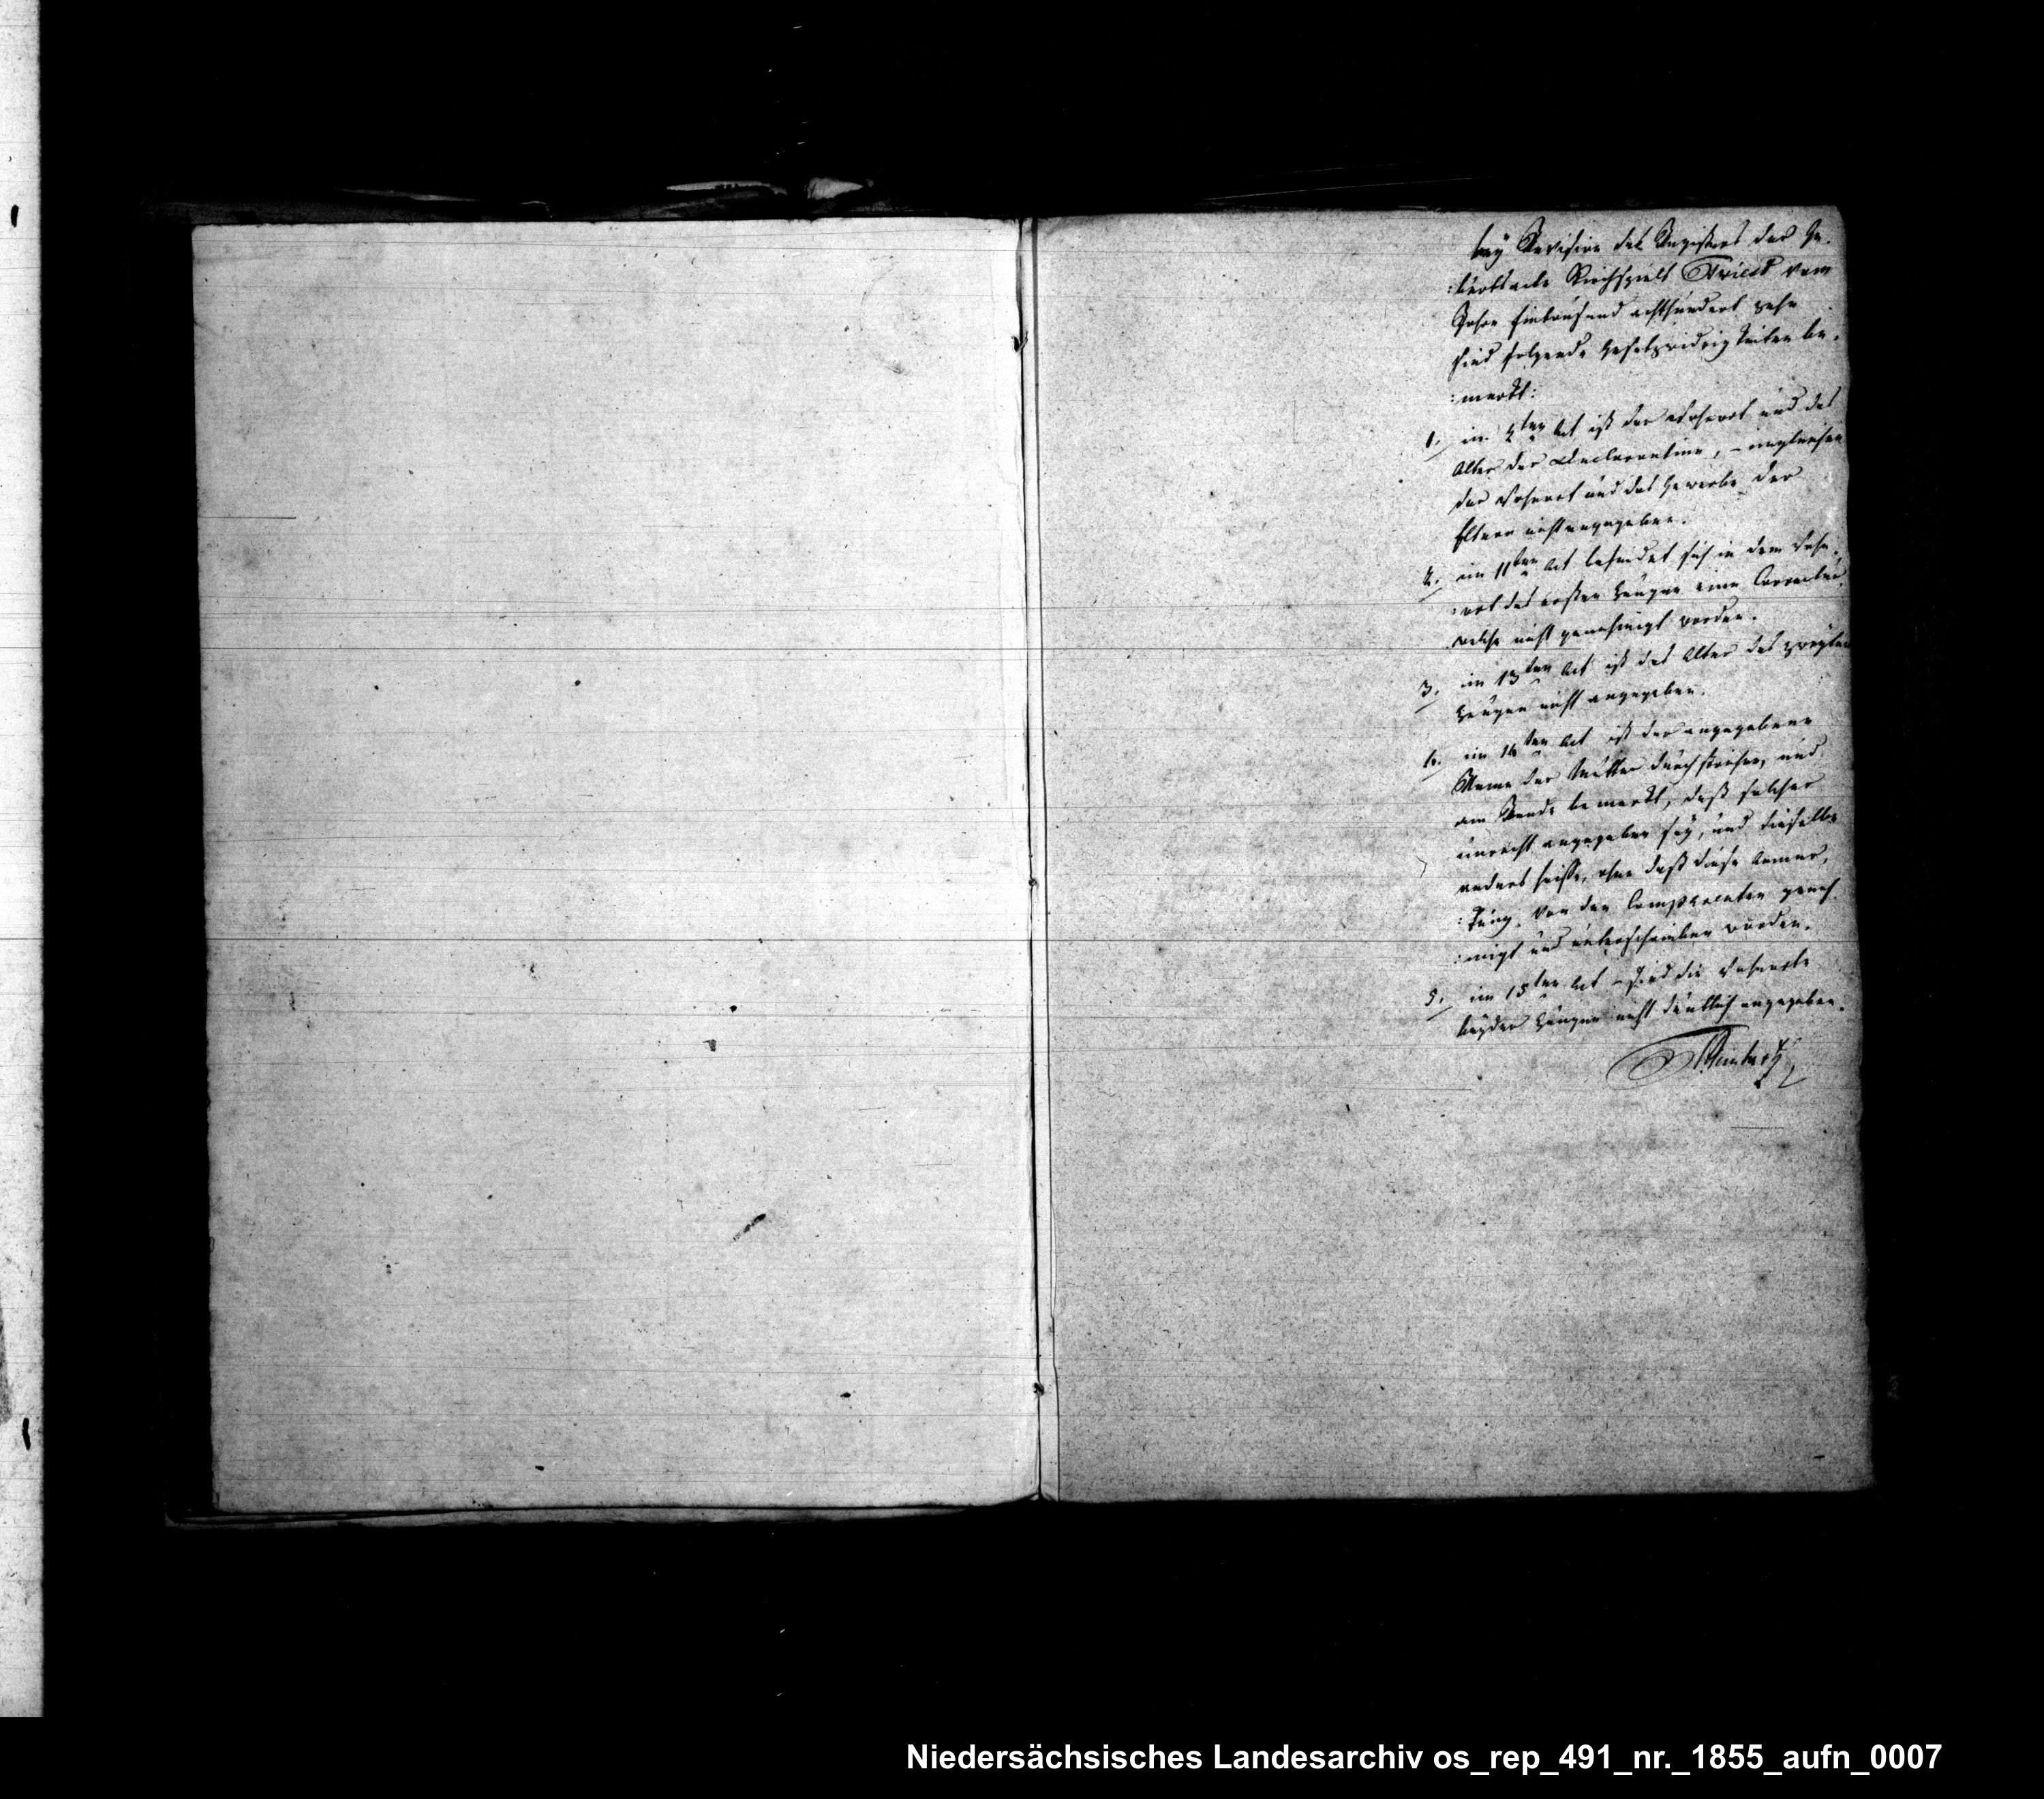 bey Revision des Registers der Ge-
:burtsacte Kirchspiels Twist vom
Jahre Eintausend achthundert zehn
sind folgende Gesetzwidrigkeiten be-
:merkt:
1. im 4ten Act ist der Wohnort und das
Alter der Declarantinn, – imgleichen
der Wohnort und das Gewerbe der
Eltern nicht angegeben.
2. im 11ten Act befindet sich in dem Wohn-
:ort des ersten Zeugen eine Correctur,
welche nicht genehmigt worden.
3. im 13ten Act ist das Alter des zweyten
Zeugen nicht angegeben.
4. im 14ten Act ist der angegebene
Name der Mutter durchstrichen, und
am Rande bemerkt, daß solcher
unrecht angegeben sey, und dieselbe
anders heisse, ohne daß diese Anmer-
:kung von den Comparenten geneh-
:migt und unterschrieben worden.
5. im 15ten Act – sind die Wohnorte
beyder Zeugen nicht deutlich angegeben.
Niedersächsisches Landesarchiv os_rep_491_nr._1855_aufn_0007